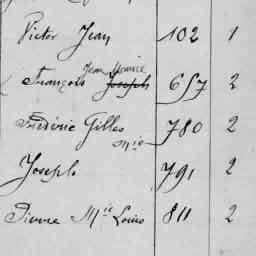 Victor Jean 102 1
Jean Marie
François Joseph 657 2
Frédéric Gilles 780 2
Mie
Joseph 791 2
Pierre Mie Louis 811 2